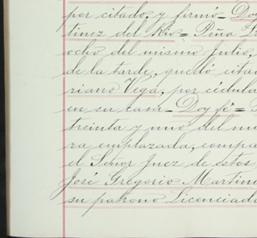 por citado, y firmó - Doy
tinez del Rio - Peña
ocho del mismo Julio,
de la tarde, quedó cita
riano Vega, por cédula
en su casa - Doy fé -
treinta y uno del mi
ra emplazada, compa
el Señor Juez de estos
José Gregorio Martine
su patrono Licenciado